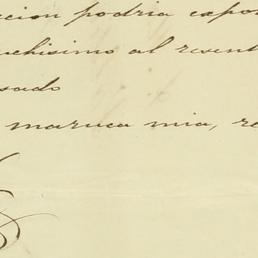 cion podria expo
uchisimo al resent
sado
maruca mia, re